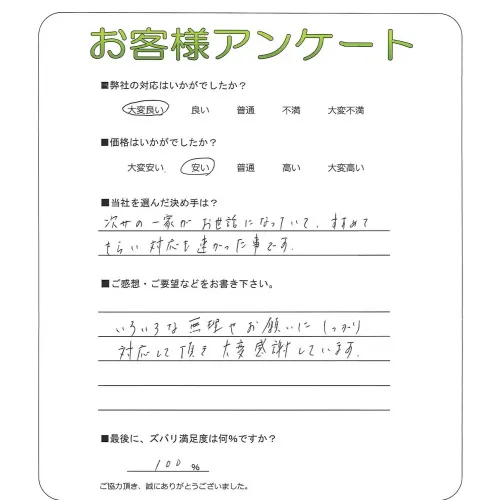 お客様アンケート
■弊社の対応はいかがでしたか？
大変良い 良い 普通 不満 大変不満
■価格はいかがでしたか？
大変安い 安い 普通 高い 大変高い
■当社を選んだ決め手は？
次女の一家がお世話になっていて、すすめて
もらい対応も速かった事です。
■ご感想・ご要望などをお書き下さい。
いろいろな無理やお願いにしっかり
対応して頂き大変感謝しています。
■最後に、ズバリ満足度は何％ですか？
100 %
ご協力頂き、誠にありがとうございました。